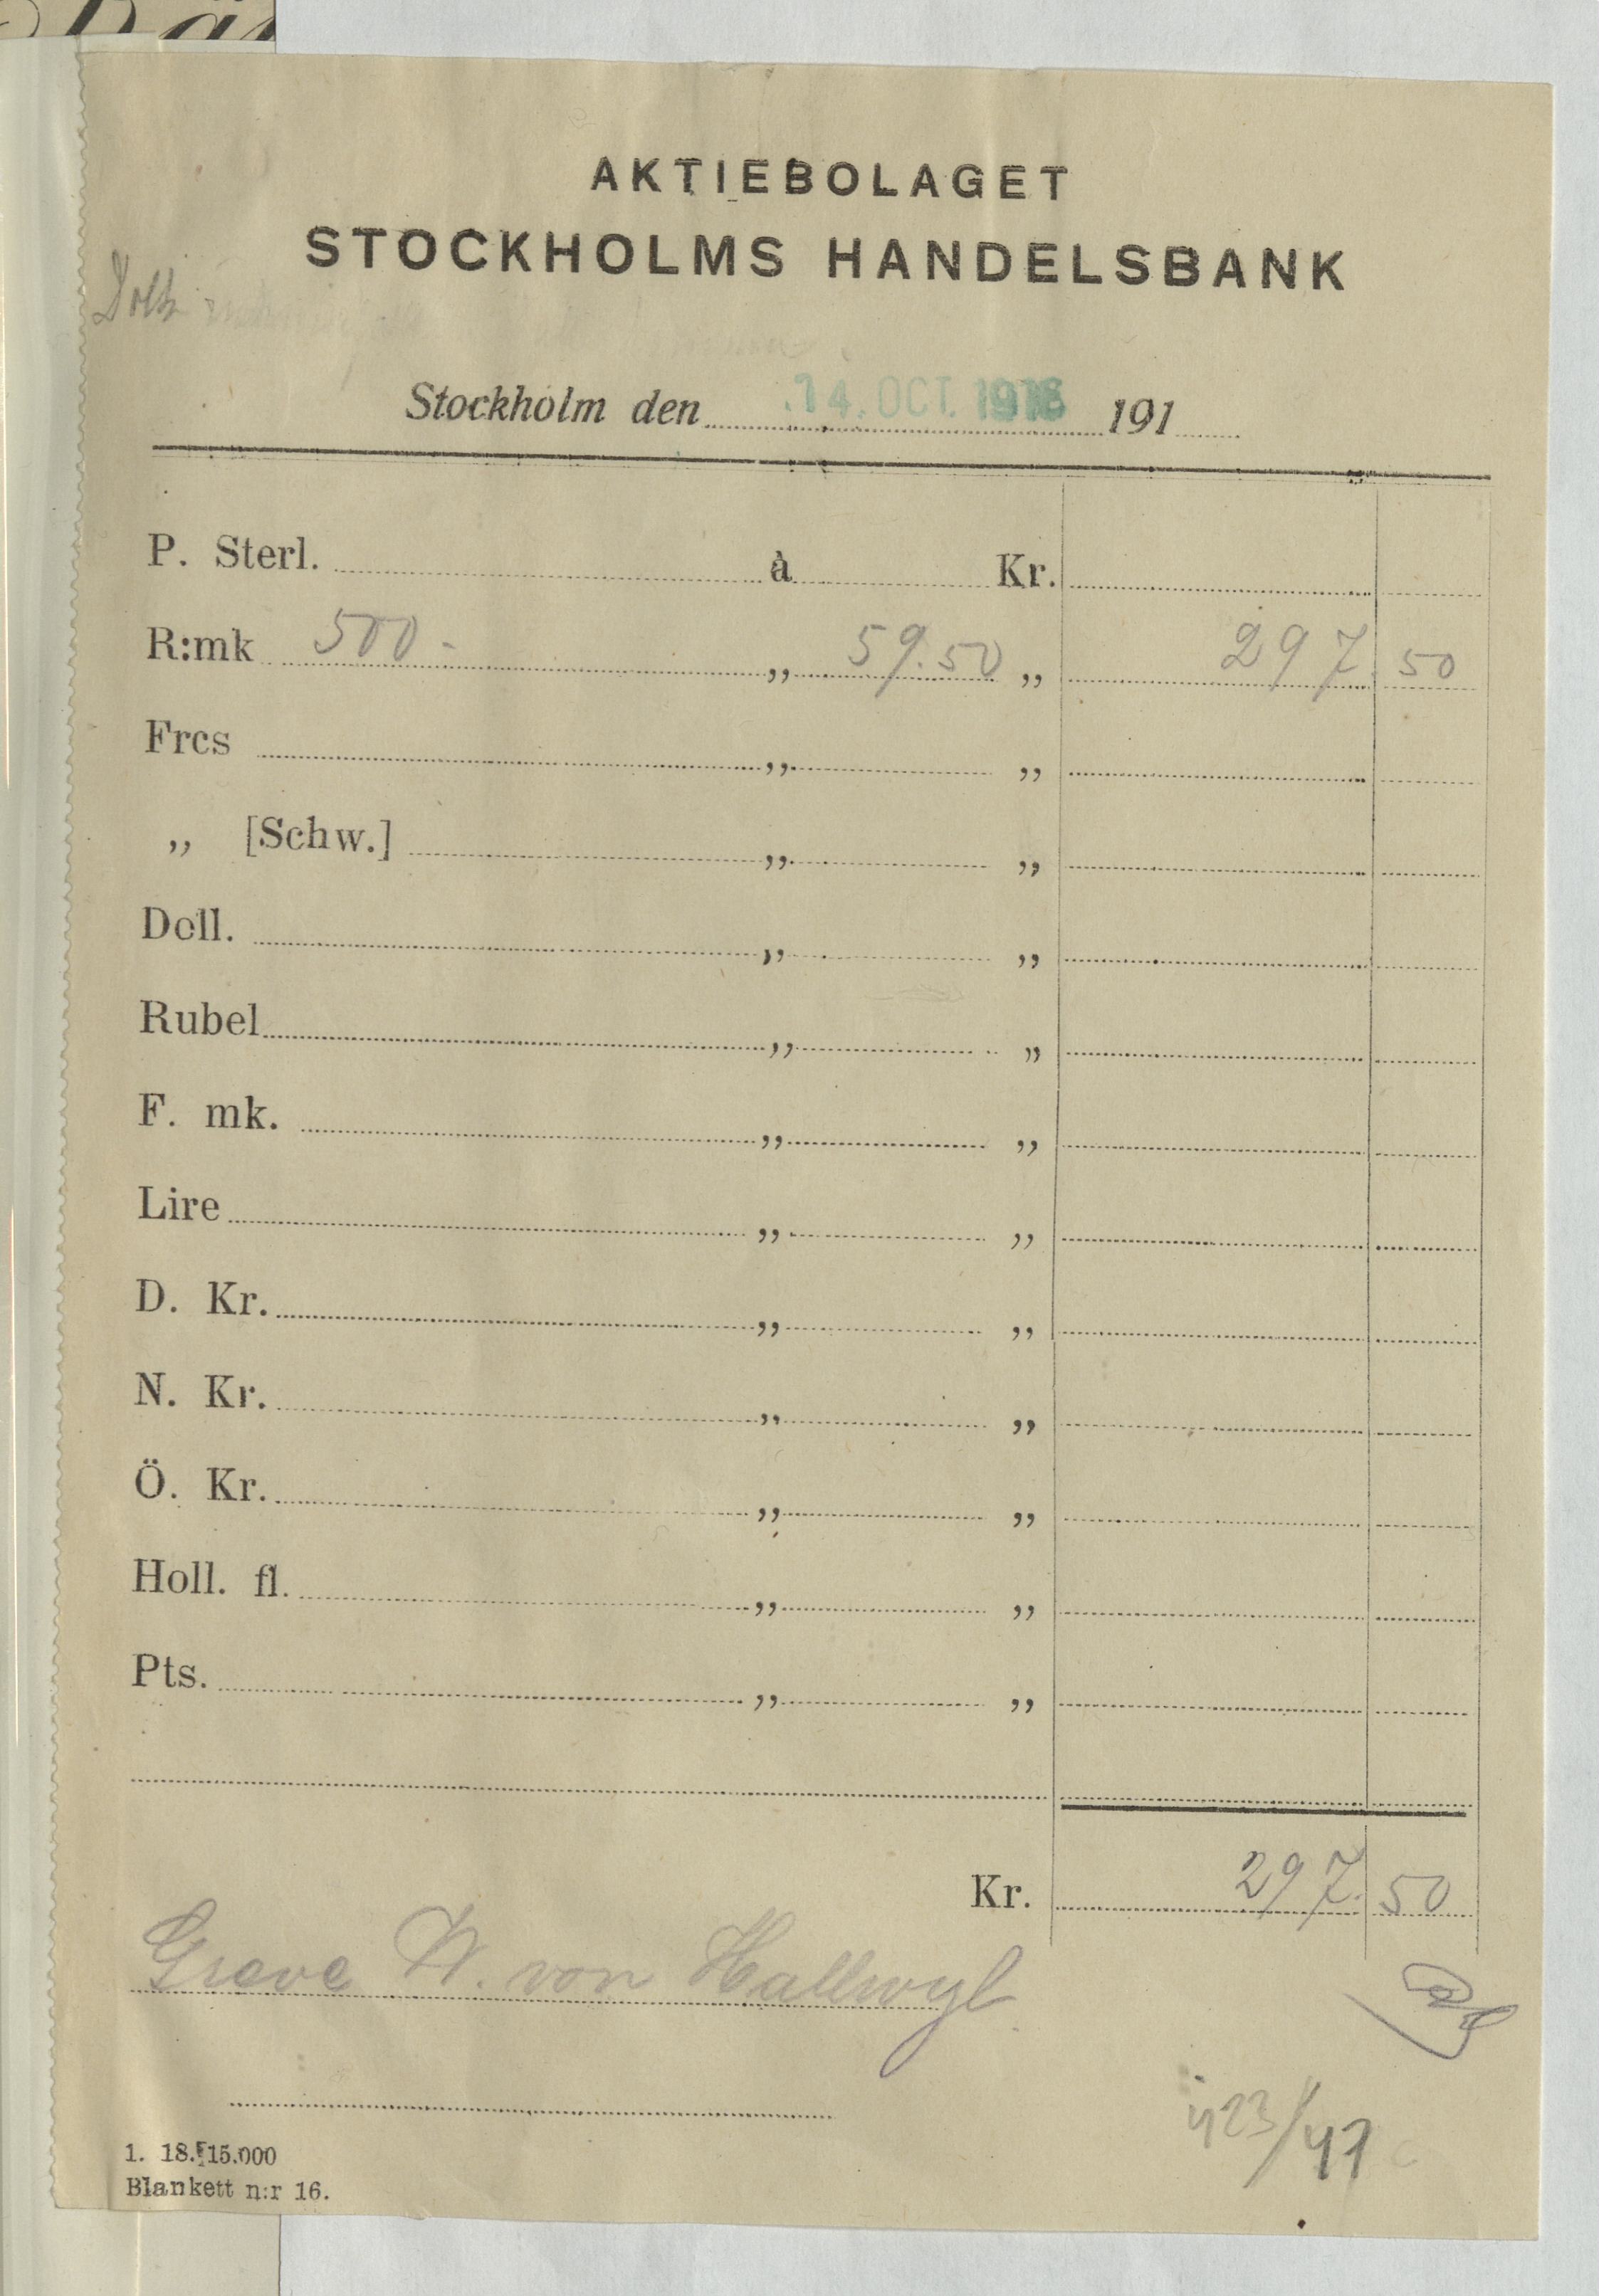 AKTIEBOLAGET
STOCKHOLMS HANDELSBANK
Stockholm den 14. OCT. 1918 191
P. Sterl. à Kr.
R:mk 500 - „ 59.50 „ 297 50
Frcs „ „
„ [Schw.] „ „
Doll. „ „
Rubel „ „
F. mk. „ „
Lire „ „
D. Kr. „ „
N. Kr. „ „
Ö. Kr. „ „
Holl. fl. „ „
Pts. „ „
Kr. 297. 50
Greve W. von Hallwyl
1. 18. 15.000
Blankett n:r 16.